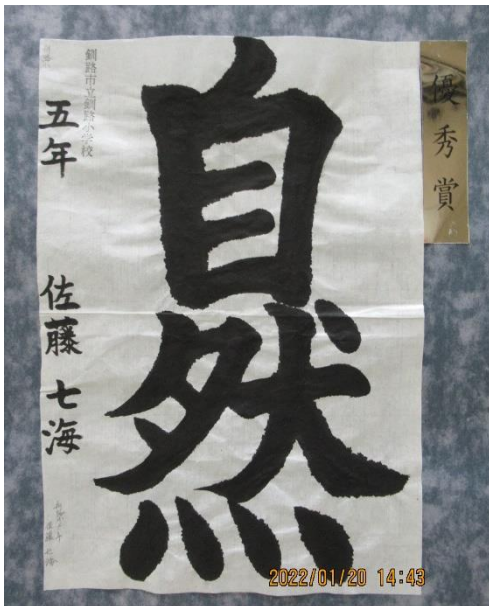 優秀賞
自然
釧路市立釧路小学校
五年 佐藤 七海
2022/01/20 14:43